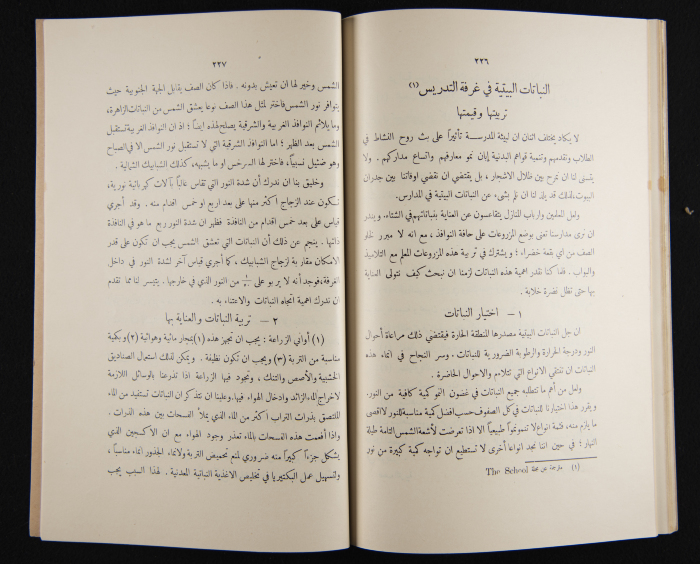 ٢٢٦
النباتات البيتية في غرفة التدريس (١)
تربيتها وقيمتها
لا يكاد يختلف اثنان ان لبيئة المدرسة تأثيراً على بث روح النشاط في
الطلاب وتقدمهم وتنمية قواهم البدنية إبان نمو معارفهم واتساع مداركهم . ولا
يتسنى لنا ان نمرح بين ظلال الاشجار ، بل يقتضي ان نقضي اوقاتنا بين جدران
البيوت، لذلك قد يلذ لنا ان نلم بشيء عن النباتات البيتية في المدارس.
ولعل المعلمين وارباب المنازل يتقاعسون عن العناية بنباتاتهم في الشتاء. ويندر
ان نرى مدارسنا تعنى بوضع المزروعات على حافة النوافذ ، مع انه لا مبرر لخلو
الصف من اي بقعة خضراء ؛ ويشترك في تربية هذه المزروعات المعلم مع التلاميذ
والبواب . فلما كنا نقدر اهمية هذه النباتات لزمنا ان نبحث كيف نتولى العناية
بها حتى تظل نضرة خلابة .
١ – اختيار النباتات
ان جل النباتات البيتية مصدرها المنطقة الحارة فيقتضي ذلك مراعاة أحوال
النور ودرجة الحرارة والرطوبة الضرورية للنباتات . وسر النجاح في انماء هذه
النباتات ان ننتقي الانواع التي تتلاءم والاحوال الحاضرة .
ولعل من أهم ما تتطلبه جميع النباتات في غضون النمو كمية كافية من النور.
ويقرر هذا اختيارنا للنباتات في كل الصفوف حسب افضل كمية مناسبة للنور لاأقصى
ما يلزم منه، فثمة انواع لا تنمو نمواً طبيعياً الا اذا تعرضت لأشعة الشمس التامة طيلة
النهار ؛ في حين اننا نجد انواعا أخرى لا تستطيع ان تواجه كمية كبيرة من نور
(١) مترجمة عن مجلة The School
٢٢٧
الشمس وخير لها ان تعيش بدونه . فاذا كان الصف يقابل الجهة الجنوبية حيث
يتوافر نور الشمس فاختر لمثل هذا الصف نوعا يعشق الشمس من النباتات الزاهرة،
وما يلائم النوافذ الغربية والشرقية يصلح لهذه ايضاً ؛ اذ ان النوافذ الغربية تستقبل
الشمس بعد الظهر ؛ اما النوافذ الشرقية التي لا تستقبل نور الشمس الا في الصباح
وهو ضئيل نسبياً، فاختر لها السرخس او ما يشبهه، كذلك الشبابيك الشمالية .
وخليق بنا ان ندرك أن شدة النور التي تقاس غالباً بآلات كهربائية نورية،
تكون عند الزجاج اكثر منها على بعد اربع او خمس اقدام منه . وقد أجري
قياس على بعد خمس اقدام من النافذة فظهر ان شدة النور ربع ما هو في النافذة
ذاتها . ينجم عن ذلك أن النباتات التي تعشق الشمس يجب ان تكون على قدر
الامكان مقاربة لزجاج الشبابيك ، كما أجري قياس آخر لشدة النور في داخل
الغرفة، فوجد أنه لا يربو على من النور الذي في خارجها . يتيسر لنا مما تقدم
ان ندرك اهمية اتجاه النباتات والاعتناء به .
٢ – تربية النباتات والعناية بها
(١) أواني الزراعة : يجب ان تجهز هذه (١) بمجار مائية وهوائية (٢) وبكمية
مناسبة من التربة (٣) ويجب ان تكون نظيفة . ويمكن لذلك استعمال الصناديق
الخشبية والأصص والتنك ، وتجود فيها الزراعة اذا تذرعنا بالوسائل اللازمة
لاخراج الماء الزائد وادخال الهواء فيها. وعلينا ان نتذكر ان النباتات تستفيد من الماء
الملتصق بذرات التراب اكثر من الماء الذي يملأ الفسحات بين هذه الذرات .
واذا أفعمت هذه الفسحات بالماء تعذر وجود الهواء مع ان الاكسجين الذي
يشكل جزءاً كبيراً منه ضروري لمنع تحميض التربة ولانماء الجذور انماء مناسباً ،
ولتسهيل عمل البكتيريا في تخليص الاغذية النباتية المعدنية . لهذا السبب يجب